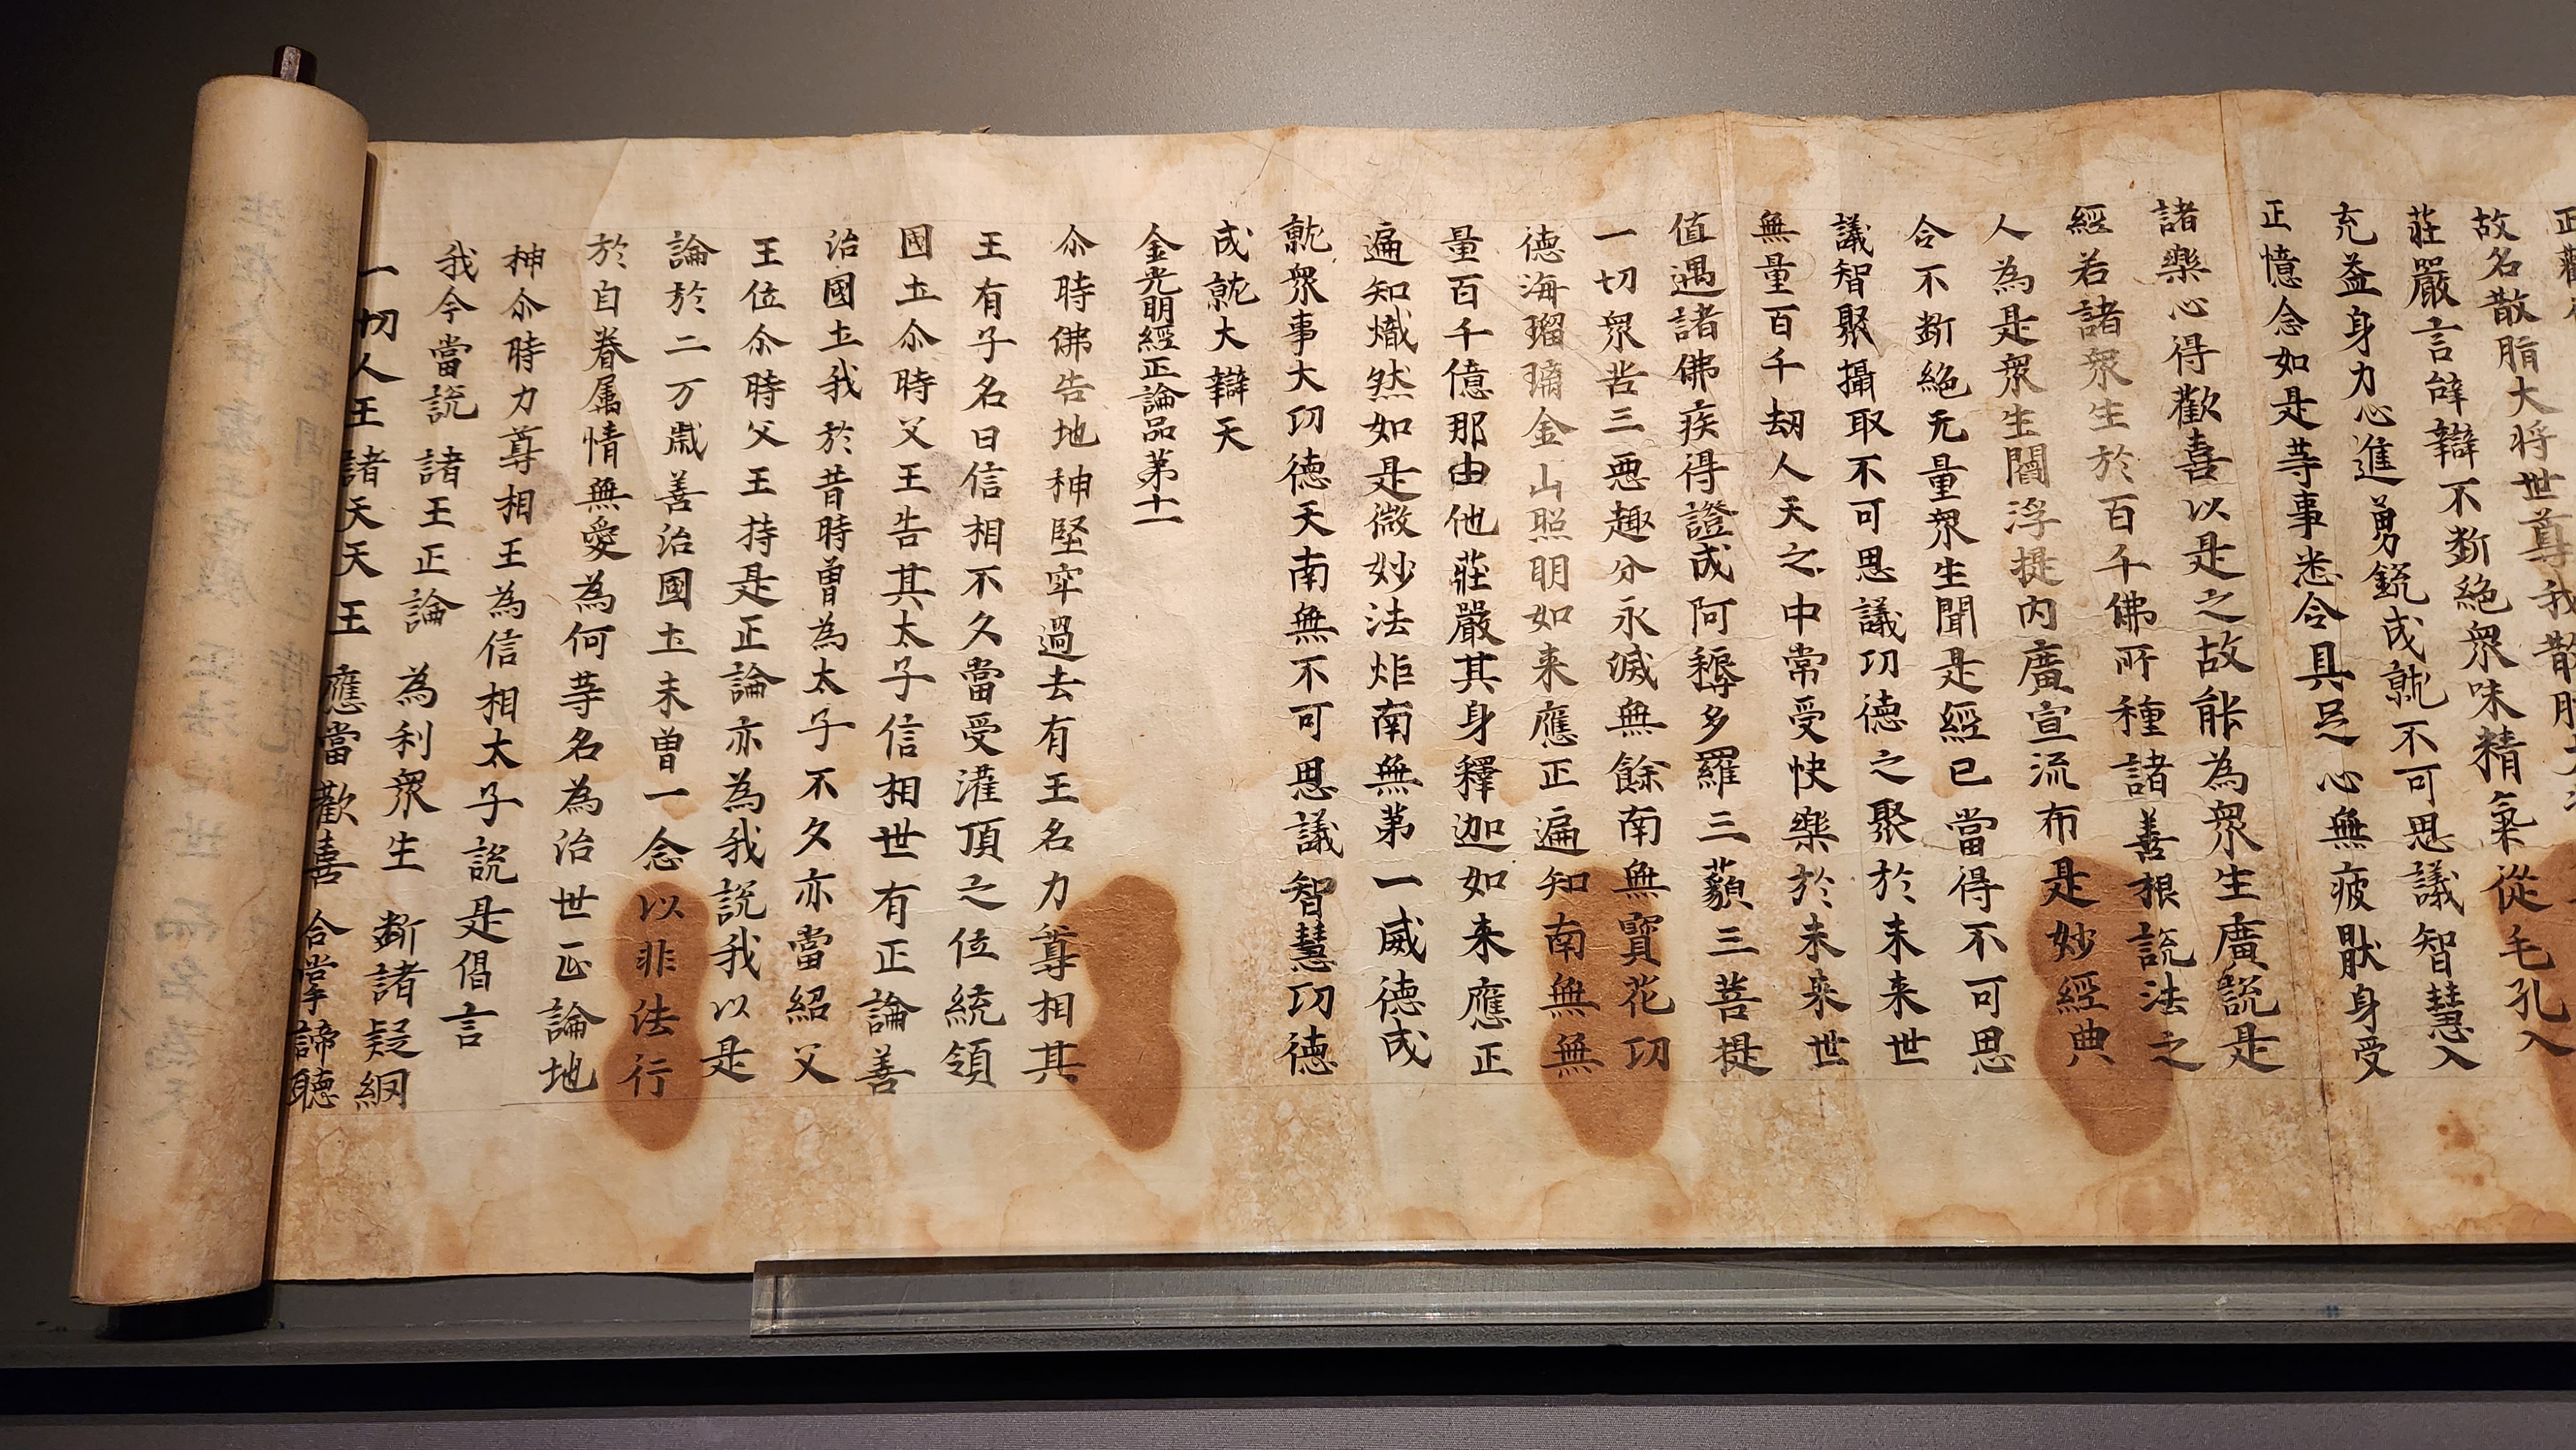 故名散脂大将世尊我散
莊嚴言辝辯不断絶衆味精氣從毛孔入
充益身力心進勇銳成就不可思議智慧入
正憶念如是等事悉令具足心無疲猒身受
諸樂心得歡喜以是之故能為衆生廣說是
經若諸衆生於百千佛所種諸善根說法之
人為是衆生閻浮提内廣宣流布是妙經典
令不断絶无量衆生聞是經已當得不可思
議智聚攝取不可思議功德之聚於未来世
無量百千劫人天之中常受快樂於未来世
值遇諸佛疾得證成阿耨多羅三藐三菩提
一切衆苦三惡趣分永滅無餘南無寶花功
德海瑠璃金山照明如来應正遍知南無無
量百千億那由他莊嚴其身釋迦如来應正
遍知熾然如是微妙法炬南無第一威德成
就衆事大功德天南無不可思議智慧功德
成就大辯天
金光明經正論品第十一
尒時佛告地神堅牢過去有王名力尊相其
王有子名曰信相不久當受灌頂之位統領
國土尒時父王告其太子信相世有正論善
治國土我於昔時曽為太子不久亦當紹父
王位尒時父王持是正論亦為我說我以是
論於二万歲善治國土未曽一念以非法行
於自眷属情無愛為何等名為治世正論地
神尒時力尊相王為信相太子說是偈言
我今當說 諸王正論 為利衆生 断諸疑網
一切人王 諸天天王 應當歡喜 合掌諦聽